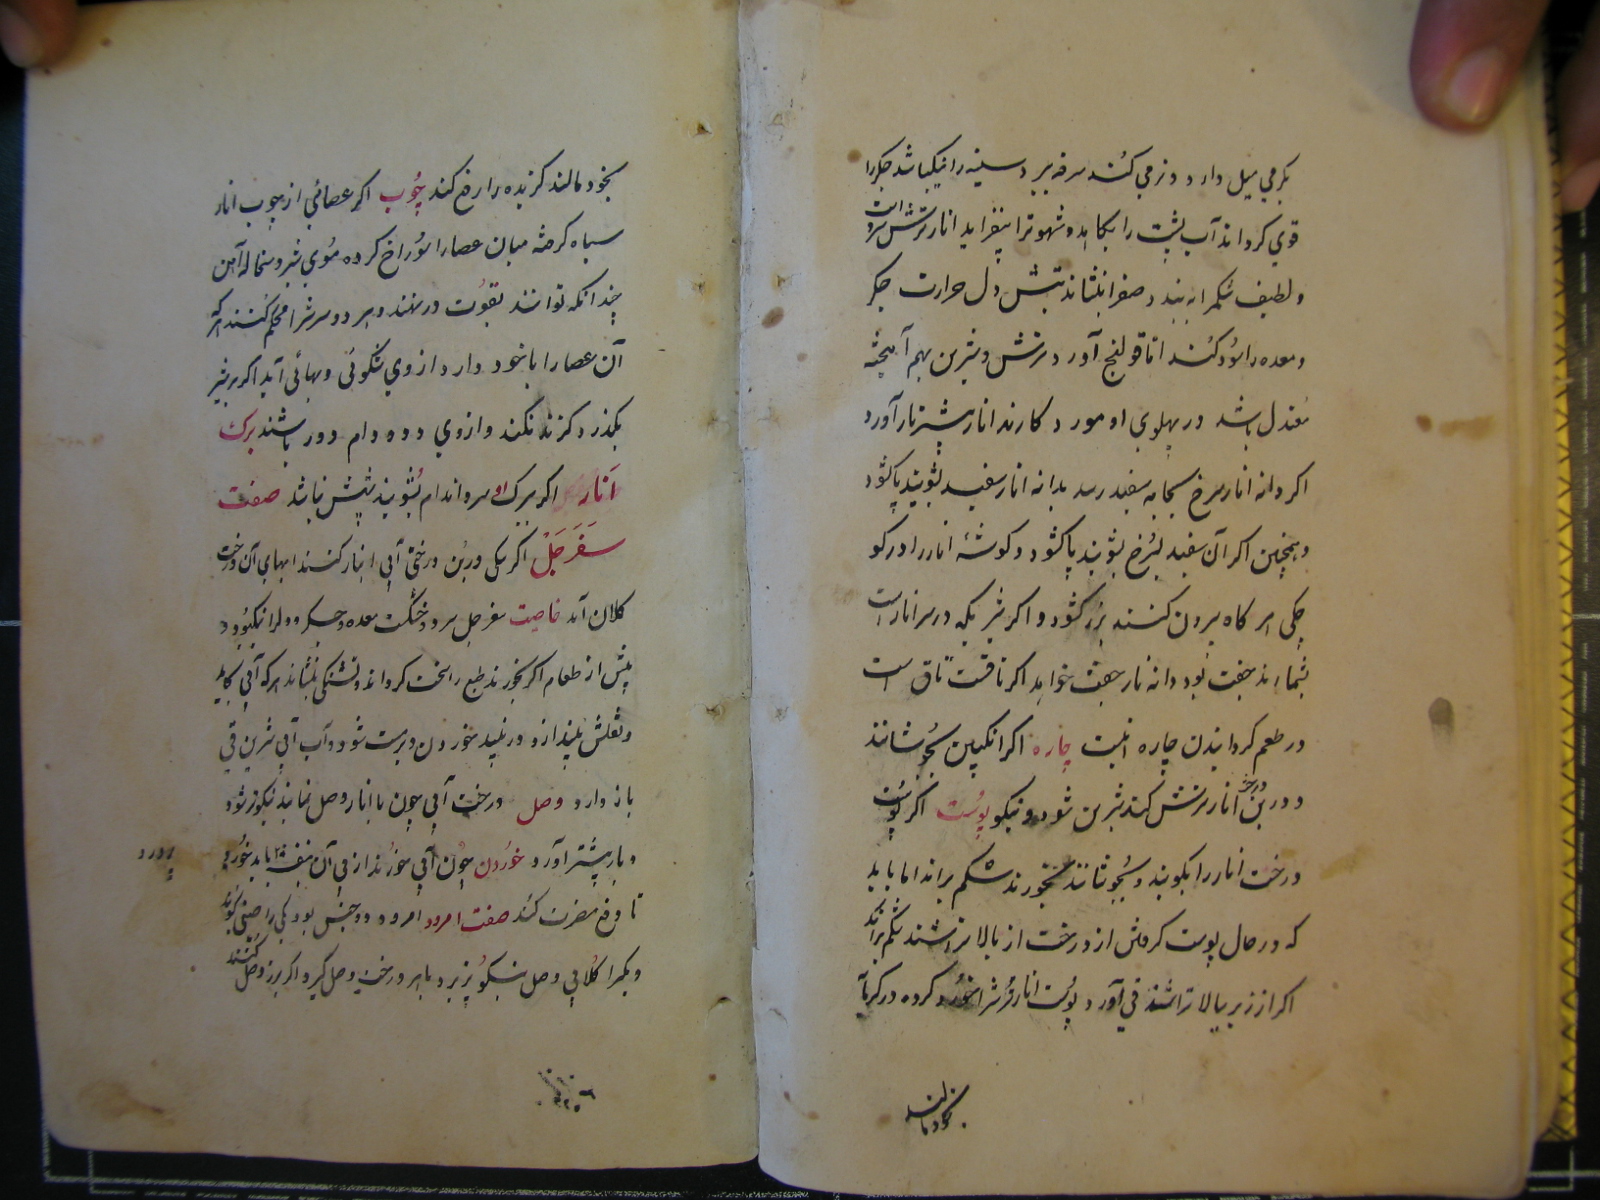 بکرمي ميل دارد و نرمي کند سرفه ببرد سينه را نيکباشد جکررا
قوي کرداند آب پشت را بکاهد و شهوترا بيفزايد انار ترش سرد است
و لطيف شکم را به بندد صفرا بنشاند تپش دل حرارت جکر
و معده را سود کند اما قولنج آورد ترش و شيرين بهم آميخته
معتدل باشد در پهلوي او مورد کارند انار بيشتر بار آورد
اکر دانه انار سرخ بجامه سفيد رسد بدانه انار سفيد بشويند پاکشود
و همچنين اکر آن سفيد بسرخ بشويند پاکشود و کوشهٔ انار را در کو
چکي هر کاه بيرون کنند بزرکشود و اکر شر بکه در سر انار است
بشمارند جفت بود دانه نار جفت خواهد اکر تاقست تاق است
در طعم کردانيدن چاره نيست چاره اکر انکبين بجوشانند
و در بن درخت انار ترش کند شيرين شود و نيکو پوست اکر پوست
درخت انار را بکوبند و بجوشانند بخورند شکم براند اما بايد
که در حال پوست کرفتن از درخت از بالا تراشند شکم براند
اکر از زير ببالا تراشند قي آورد پوست انار ترش را خورد کرده در کرمآ
بخود مالند
بخود مالند کزنده را رفع کند چوب اکر عصائي از چوب انار
سياه کرفته ميان عصا را سوراخ کرده موي شير و نخاله آهن
چندانکه توانند بقوت در نهند و هر دو سرش را محکم کنند هر که
آن عصا را با خود دارد از وي شکوئي و بهائي آيد اکر بر شير
بکذرد کزند نکند و از وي دد و دام دور باشند برک
انار اکر ببرک او سر و اندام بشويند شپش نباشد صفت
سفرجل اکر يکي در بن درختي آبي انبار کنند ابهاي آن درخت
کلان آيد خاصيت سفرجل سرد و خشکست معده و جکر و دلرا نيکبود و
پيش از طعام اکر بخورند طبع را سخت کرداند و تشنکي بنشاند هر که آبي بخايد
و ثفلش بيندازد در نبيد خوردن دير مست شود و آب آبي شيرين قي
باز دارد وصل درخت آبي چون با انار وصل نمايند نيکوتر شود
و بار بيشتر آورد خوردن چون آبي خورند از پي آن بايد خورد
تا دفع مضرت کند صفت امرود امرود دو جنس بود يکي را چيني کويند
و يکيرا کلابي وصل نيکو پزيرد با هر درخت وصل کيرد اکر بزر وصل کنند